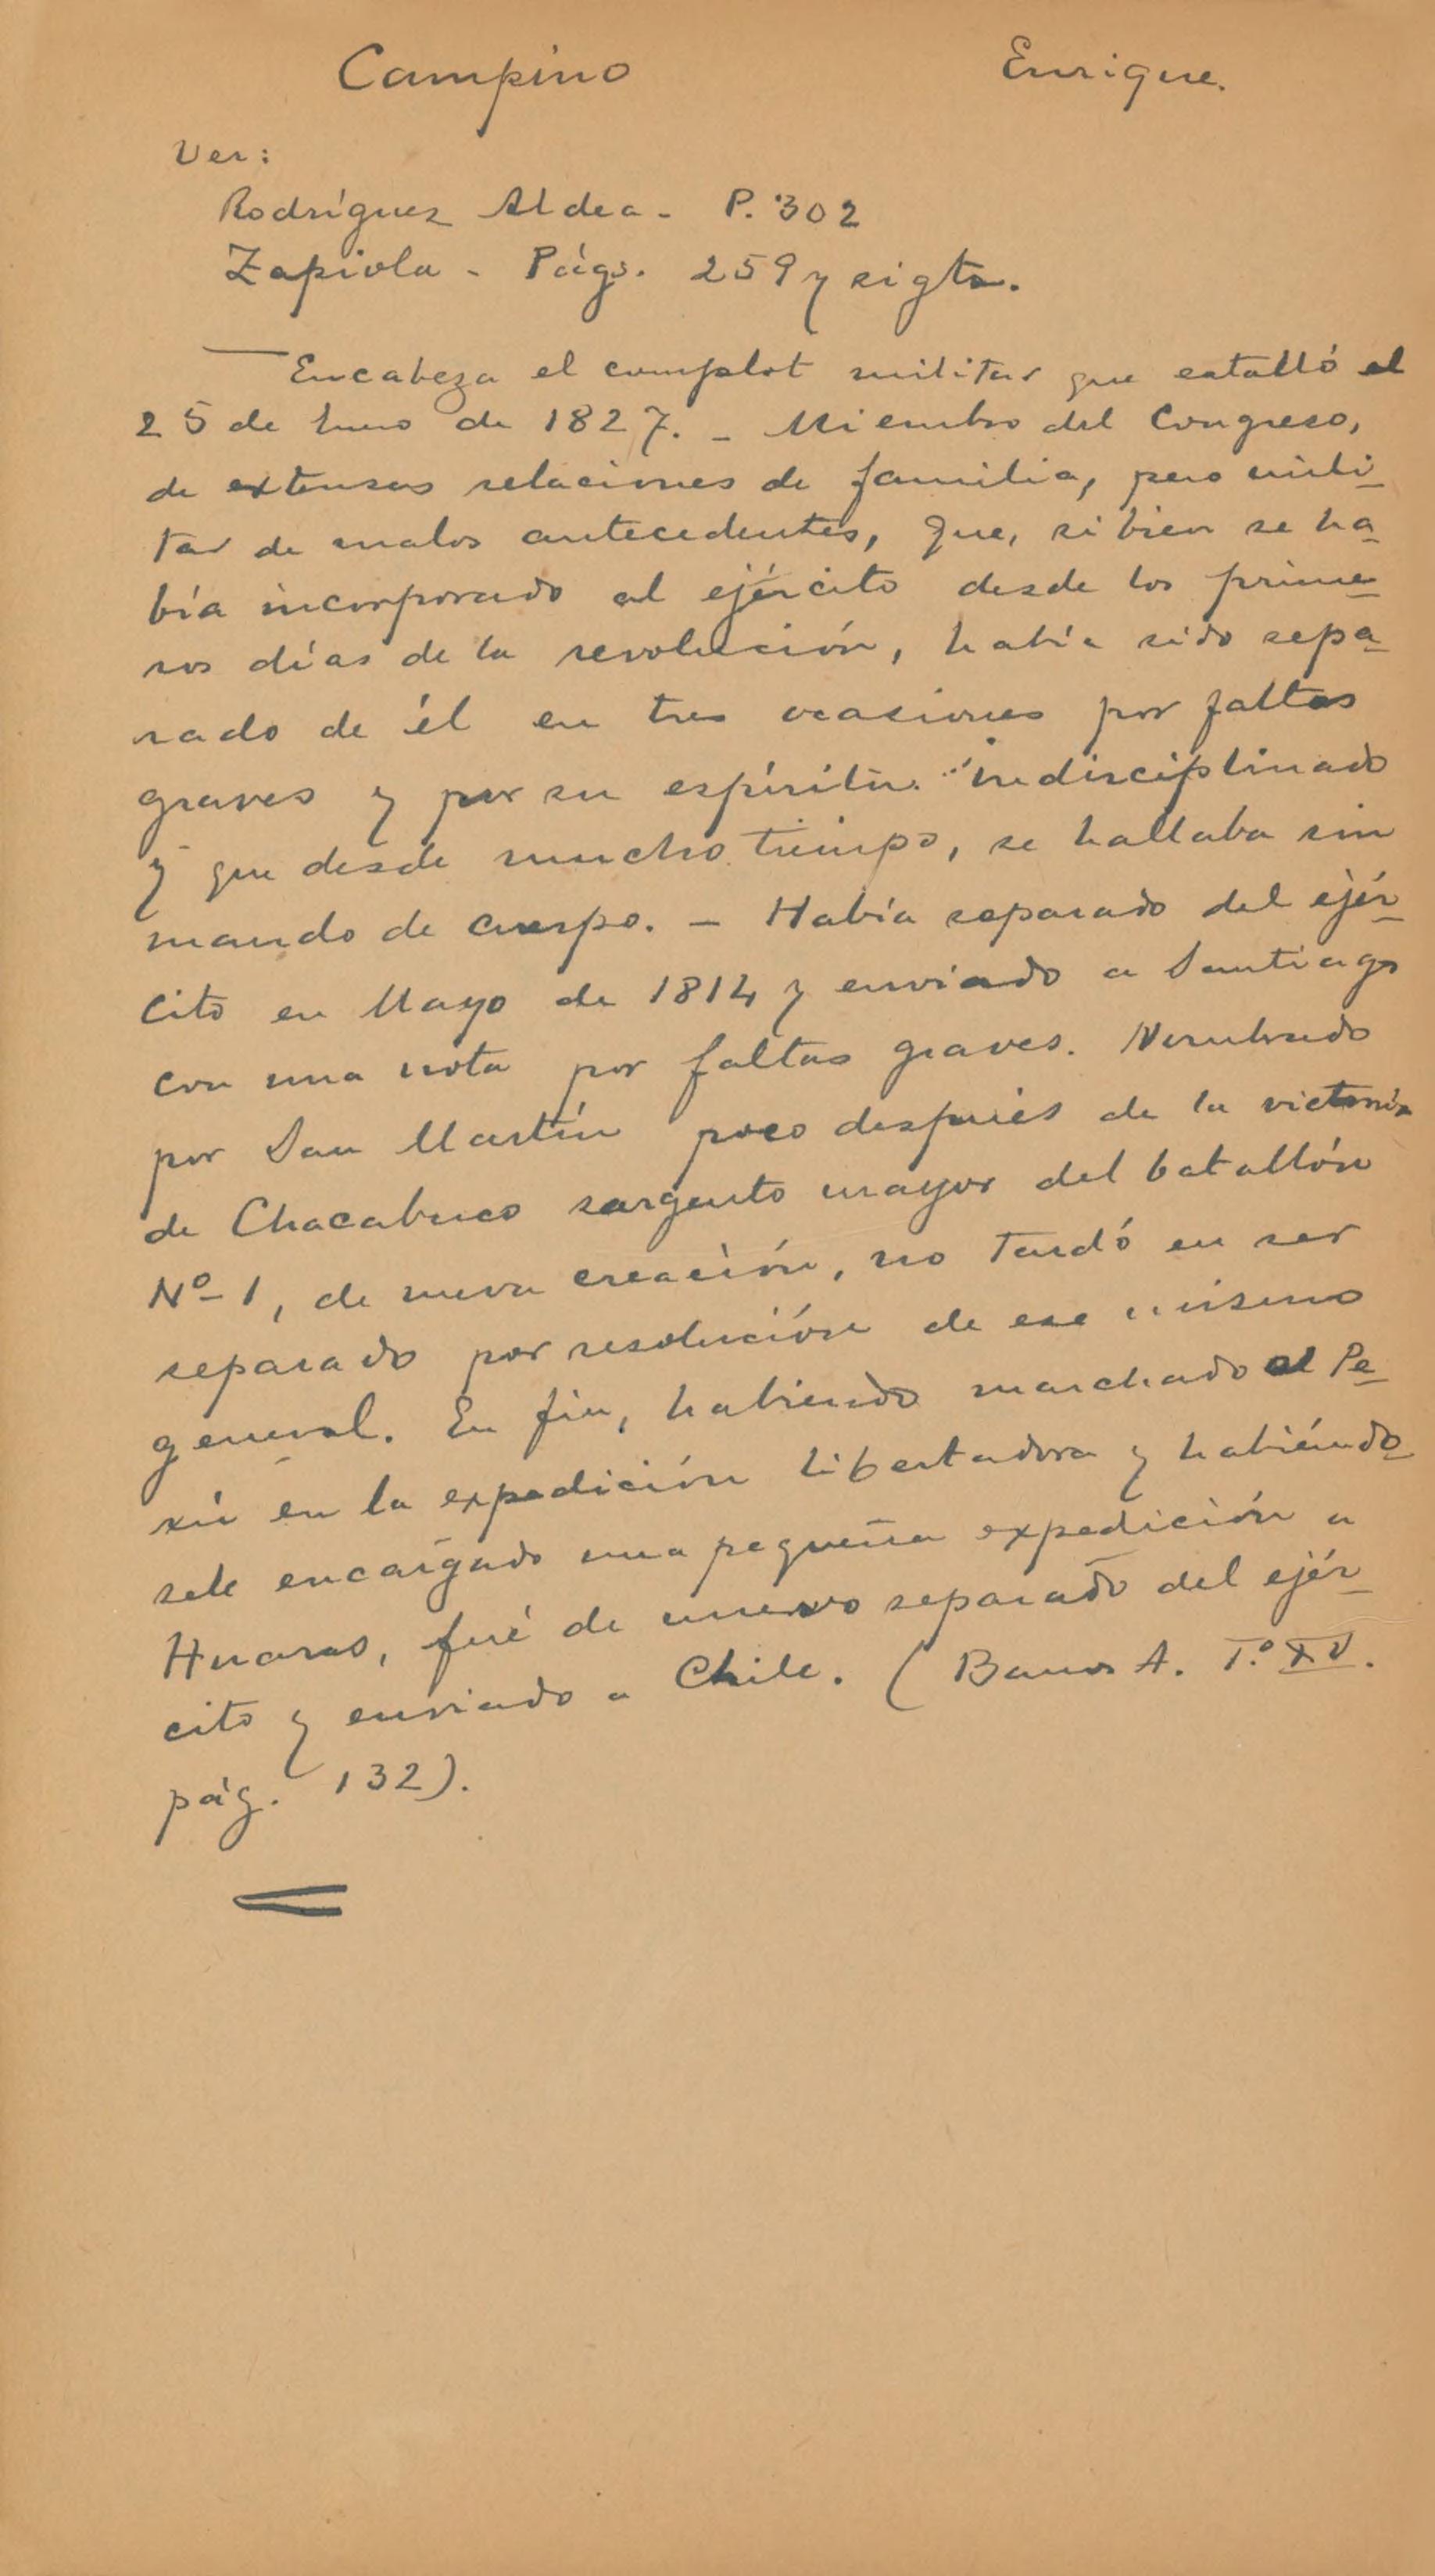 Campino Enrique.
Ver:
Rodríguez Aldea - P. 302
Zapiola - Págs. 259 y sigts.
Encabeza el complot militar que estalló el
25 de de 1827. - Miembro del Congreso,
de extensas relaciones de familia, pero mili-
tar de malos antecedentes, que, si bien se ha-
bía incorporado al ejército desde los prime-
ros días de la revolución, había sido sepa-
rado de él en tres ocasiones por faltas
graves y por su espíritu indisciplinado
y que desde mucho tiempo, se hallaba sin
mando de cuerpo. - Había separado del ejér-
cito en Mayo de 1814 y enviado a Santiago
con una nota por faltas graves. Nombrado
por San Martín poco después de la victoria
de Chacabuco sargento mayor del batallón
Nº 1, de nueva creación, no tardó en ser
separado por resolución de ese mismo
general. En fin, habiendo marchado al Pe-
rú en la expedición libertadora y habiéndo-
sele encargado una pequeña expedición a
Huaras, fué de nuevo separado del ejér-
cito y enviado a Chile. (Barros A. T.º XV.
pág. 132).